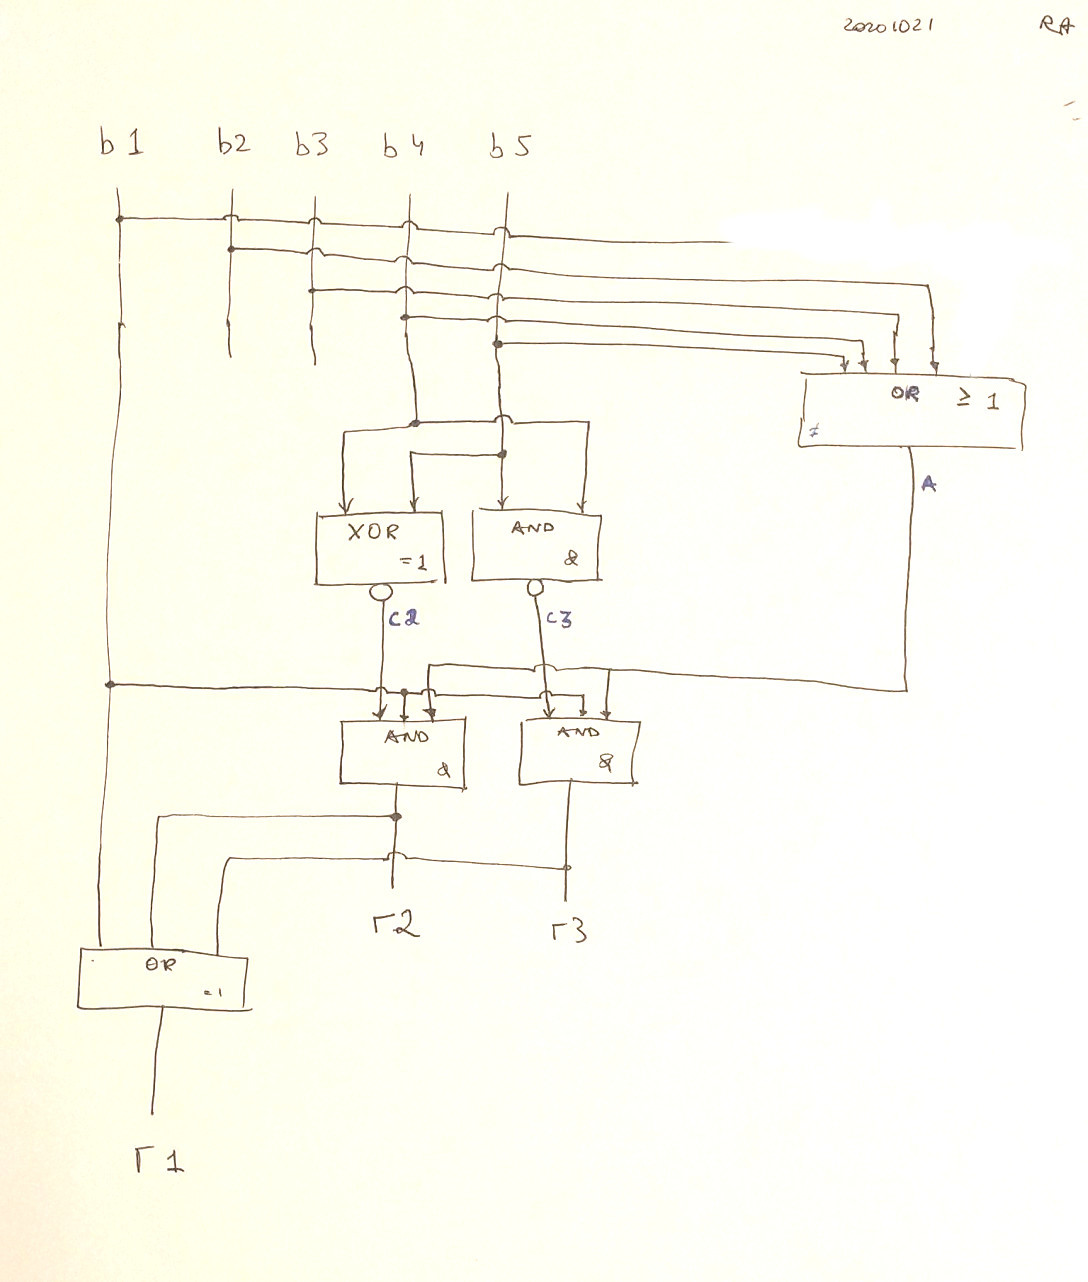 20201021 RA
b1 b2 b3 b4 b5
OR ≥ 1
≠
A
XOR
=1
AND
&
C2
C3
AND
&
AND
&
r2
r3
OR
=1
r1